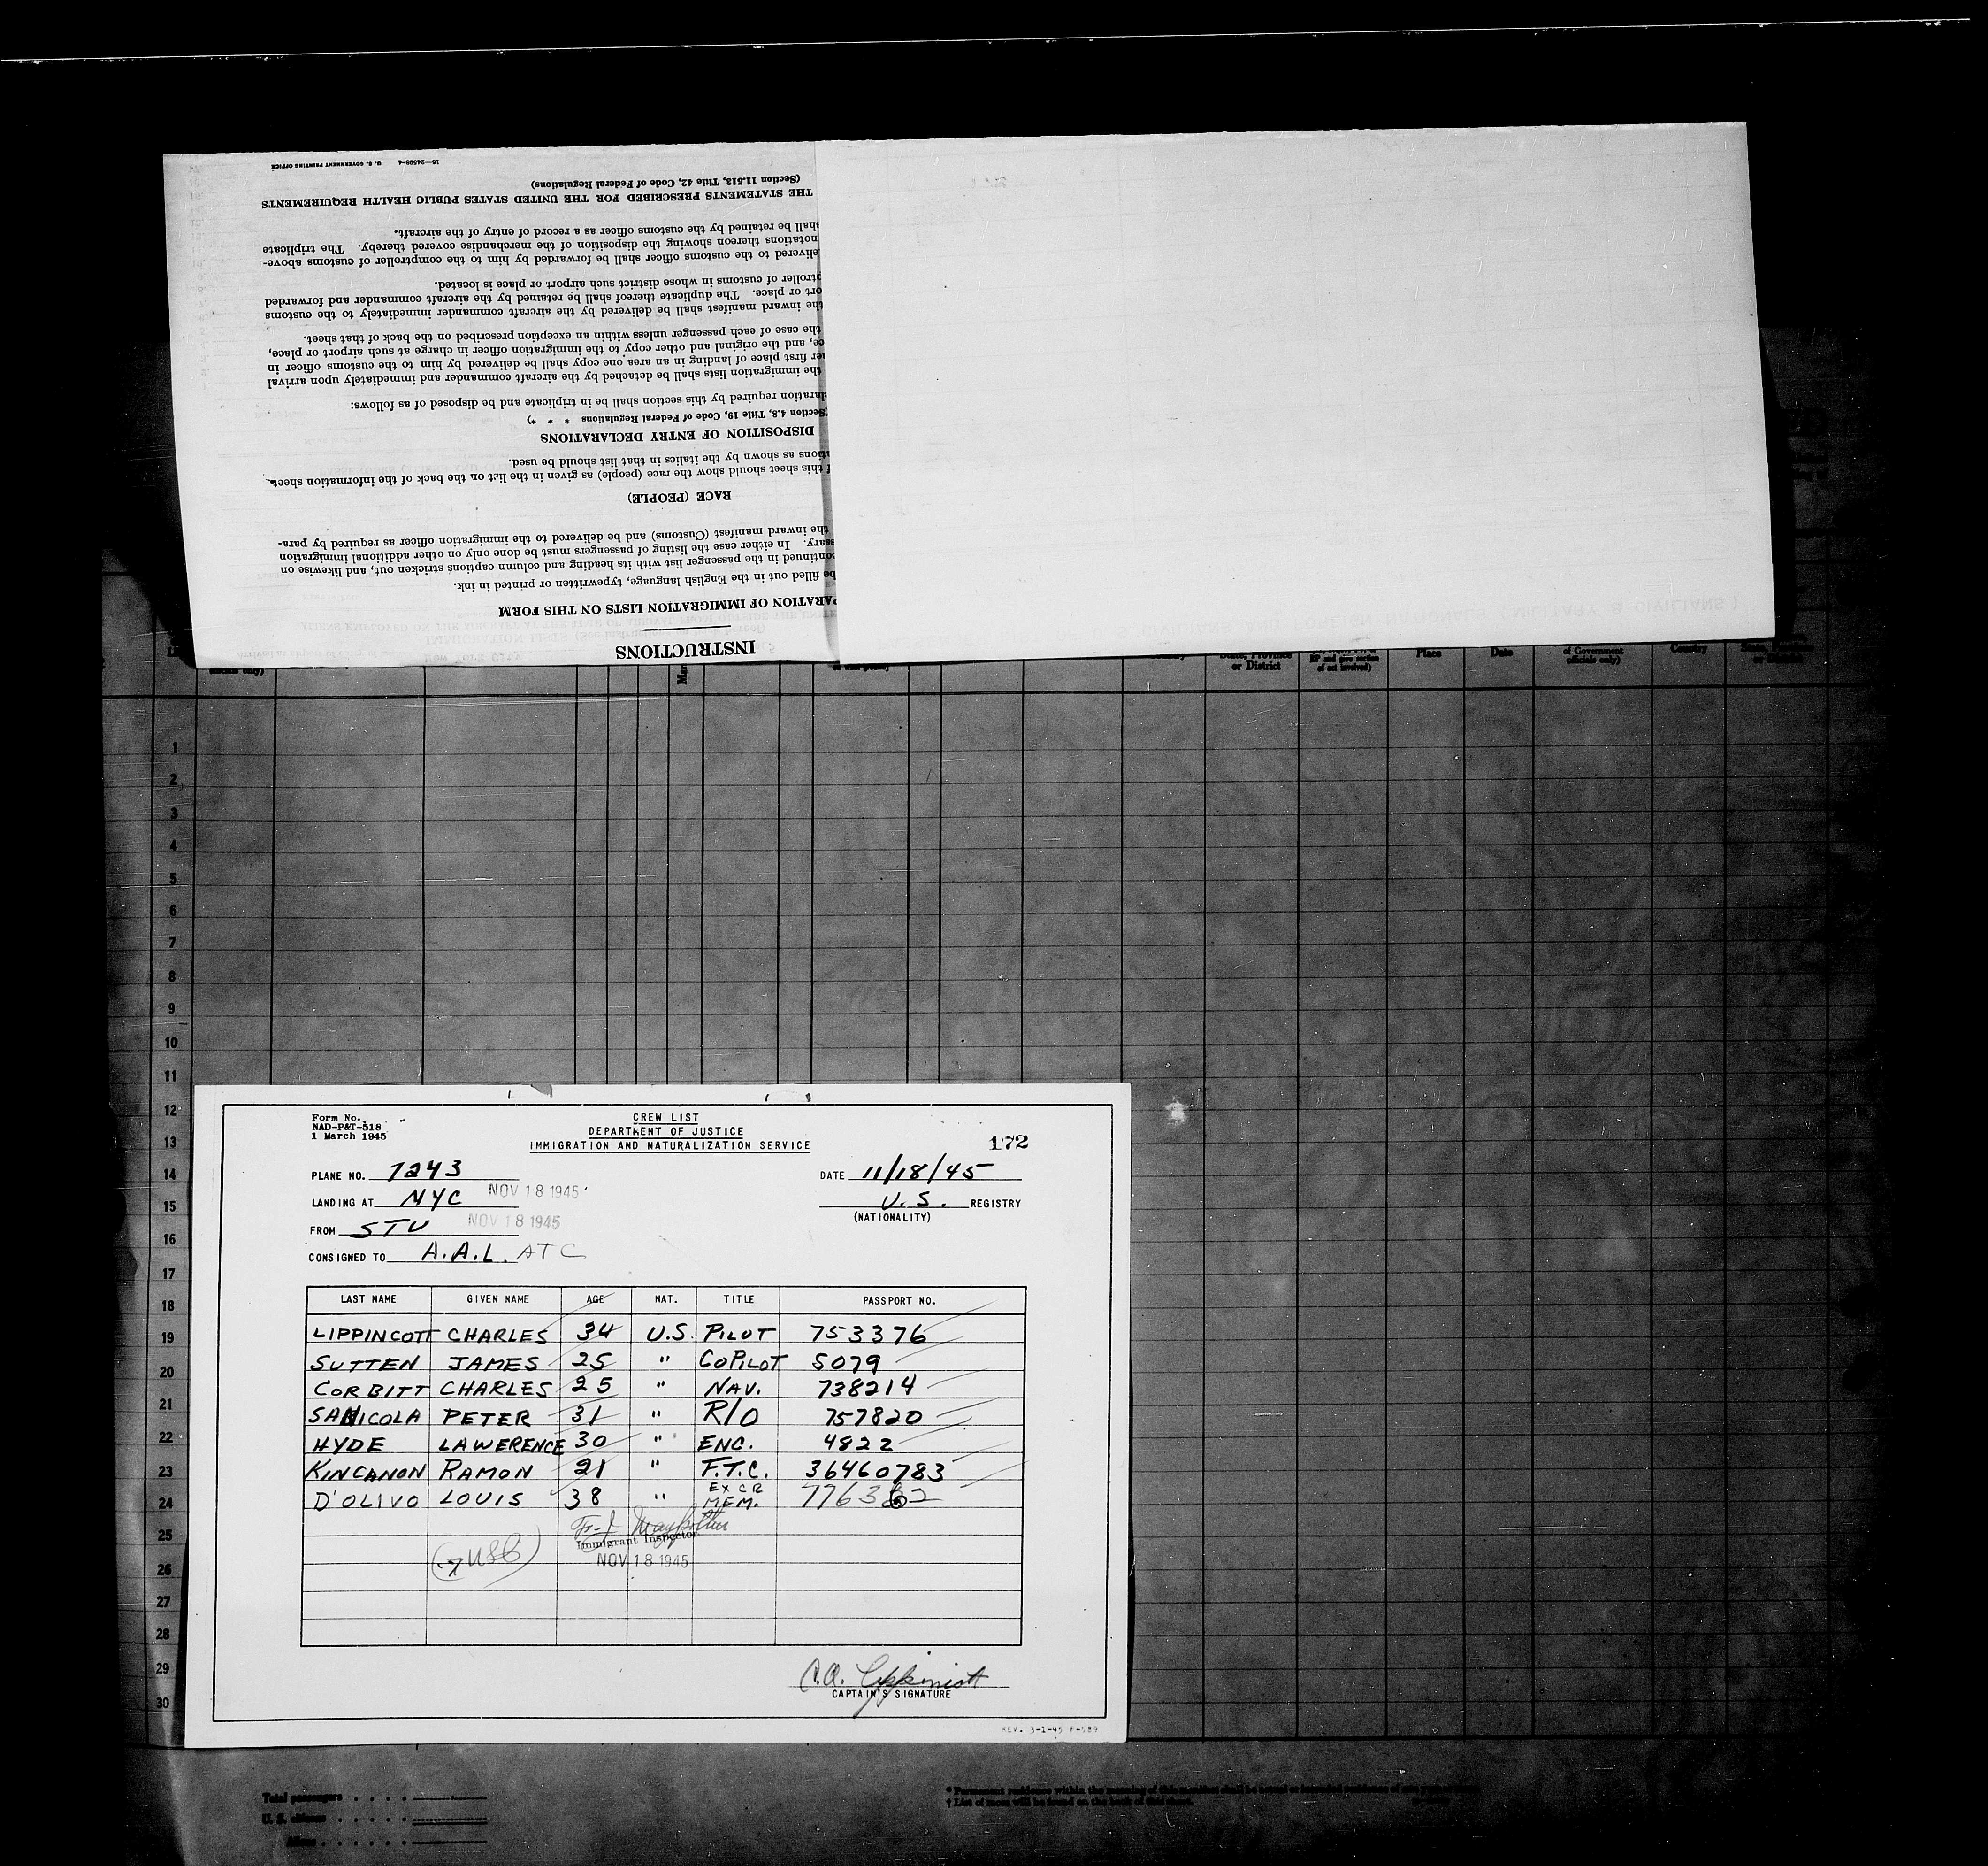 16—24598-4 U. S. GOVERNMENT PRINTING OFFICE
(Section 11.513, Title 42, Code of Federal Regulations)
THE STATEMENTS PRESCRIBED FOR THE UNITED STATES PUBLIC HEALTH REQUIREMENTS
shall be retained by the customs officer as a record of entry of the aircraft.
notations thereon showing the disposition of the merchandise covered thereby. The triplicate
delivered to the customs officer shall be forwarded by him to the comptroller of customs above-
ptroller of customs in whose district such airport or place is located.
ort or place. The duplicate thereof shall be retained by the aircraft commander and forwarded
the inward manifest shall be delivered by the aircraft commander immediately to the customs
the case of each passenger unless within an exception prescribed on the back of that sheet.
ce, and the original and other copy to the immigration officer in charge at such airport or place,
er first place of landing in an area, one copy shall be delivered by him to the customs officer in
the immigration lists shall be detached by the aircraft commander and immediately upon arrival
laration required by this section shall be in triplicate and be disposed of as follows:
(Section 4.8, Title 19, Code of Federal Regulations * * *)
DISPOSITION OF ENTRY DECLARATIONS
tions as shown by the italics in that list should be used.
f this sheet should show the race (people) as given in the list on the back of the information sheet.
RACE (PEOPLE)
the inward manifest (Customs) and be delivered to the immigration officer as required by para-
ssary. In either case the listing of passengers must be done only on other additional immigration
continued in the passenger list with its heading and column captions stricken out, and likewise on
be filled out in the English language, typewritten or printed in ink.
PARATION OF IMMIGRATION LISTS ON THIS FORM
INSTRUCTIONS
State, Province or District
RP and give section of act involved)
Place
Date
of Government officials only)
Country
1
2
3
4
5
6
7
8
9
10
11
12
13
14
15
16
17
18
19
20
21
22
23
24
25
26
27
28
29
30
Form No.
NAD-P&T-518
1 March 1945
CREW LIST
DEPARTMENT OF JUSTICE
IMMIGRATION AND NATURALIZATION SERVICE
172
PLANE NO. 7243 DATE 11/18/45
LANDING AT NYC NOV 18 1945 U.S. REGISTRY
(NATIONALITY)
FROM STU NOV 18 1945
CONSIGNED TO A.A.L. ATC
LAST NAME GIVEN NAME AGE NAT. TITLE PASSPORT NO.
LIPPINCOTT CHARLES 34 U.S. PILOT 753376
SUTTEN JAMES 25 " COPILOT 5079
CORBITT CHARLES 25 " NAV. 738214
SANICOLA PETER 31 " R/O 757820
HYDE LAWERENCE 30 " ENG. 4822
KINCANON RAMON 21 " F.T.C. 36460783
D'OLIVO LOUIS 38 " EX CR MEM. 776362
Immigrant Inspector
(7 USC)
NOV 18 1945
C.A. Lippincott
CAPTAIN'S SIGNATURE
REV. 3-1-45 P-589
Total passengers
U. S. citizens
Aliens
† List of races will be found on the back of this sheet.